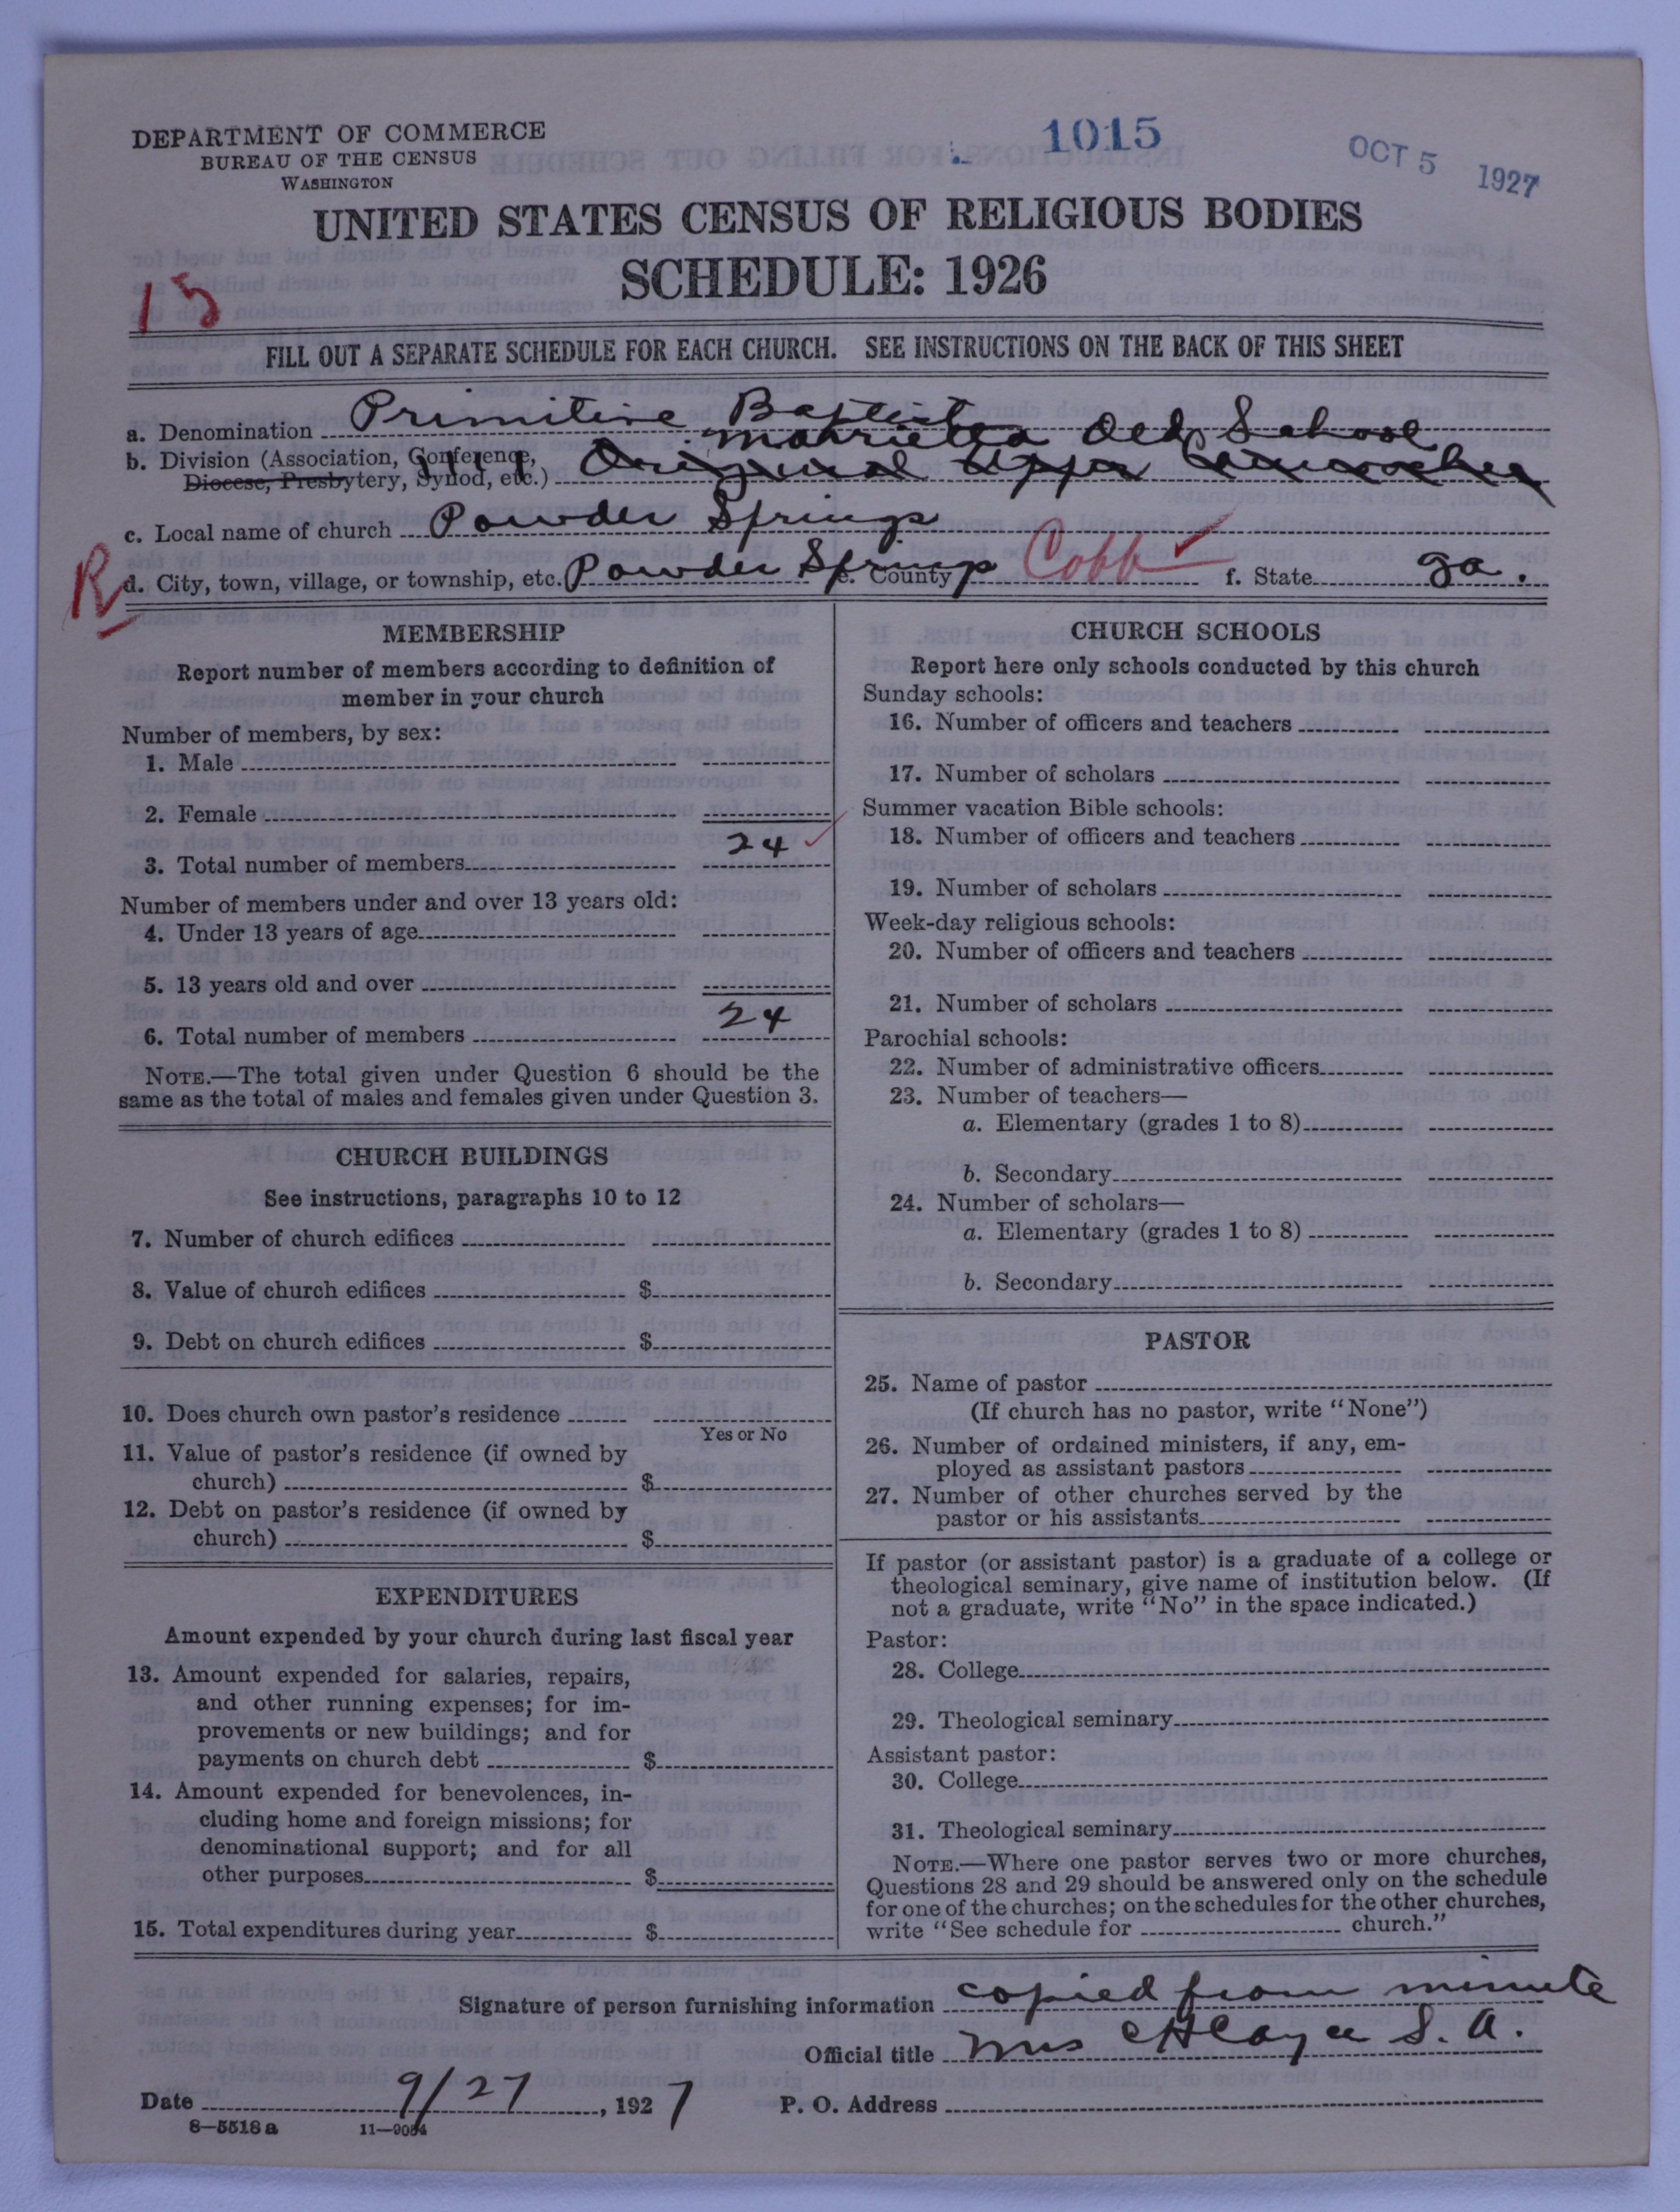 DEPARTMENT OF COMMERCE
BUREAU OF THE CENSUS
WASHINGTON
1015
OCT 5 1927
UNITED STATES CENSUS OF RELIGIOUS BODIES
SCHEDULE: 1926
15
FILL OUT A SEPARATE SCHEDULE FOR EACH CHURCH. SEE INSTRUCTIONS ON THE BACK OF THIS SHEET
a. Denomination Primitive Baptist
Marrietta Old School
b. Division (Association, Conference,
Diocese, Presbytery, Synod, etc.) Original Upper
c. Local name of church Powder Springs
R
d. City, town, village, or township, etc. Powder Springs e. County Cobb f. State Ga.
MEMBERSHIP
Report number of members according to definition of
member in your church
Number of members, by sex:
1. Male
2. Female
3. Total number of members 24
Number of members under and over 13 years old:
4. Under 13 years of age
5. 13 years old and over
6. Total number of members 24
NOTE.—The total given under Question 6 should be the
same as the total of males and females given under Question 3.
CHURCH BUILDINGS
See instructions, paragraphs 10 to 12
7. Number of church edifices
8. Value of church edifices $
9. Debt on church edifices $
10. Does church own pastor's residence
Yes or No
11. Value of pastor's residence (if owned by
church) $
12. Debt on pastor's residence (if owned by
church) $
EXPENDITURES
Amount expended by your church during last fiscal year
13. Amount expended for salaries, repairs,
and other running expenses; for im-
provements or new buildings; and for
payments on church debt $
14. Amount expended for benevolences, in-
cluding home and foreign missions; for
denominational support; and for all
other purposes $
15. Total expenditures during year $
CHURCH SCHOOLS
Report here only schools conducted by this church
Sunday schools:
16. Number of officers and teachers
17. Number of scholars
Summer vacation Bible schools:
18. Number of officers and teachers
19. Number of scholars
Week-day religious schools:
20. Number of officers and teachers
21. Number of scholars
Parochial schools:
22. Number of administrative officers
23. Number of teachers—
a. Elementary (grades 1 to 8)
b. Secondary
24. Number of scholars—
a. Elementary (grades 1 to 8)
b. Secondary
PASTOR
25. Name of pastor
(If church has no pastor, write "None")
26. Number of ordained ministers, if any, em-
ployed as assistant pastors
27. Number of other churches served by the
pastor or his assistants
If pastor (or assistant pastor) is a graduate of a college or
theological seminary, give name of institution below. (If
not a graduate, write "No" in the space indicated.)
Pastor:
28. College
29. Theological seminary
Assistant pastor:
30. College
31. Theological seminary
NOTE.—Where one pastor serves two or more churches,
Questions 28 and 29 should be answered only on the schedule
for one of the churches; on the schedules for the other churches,
write "See schedule for church."
Signature of person furnishing information copied from minute
Official title Mrs S. A.
Date 9/27, 1927 P. O. Address
8—5518 a 11—9054